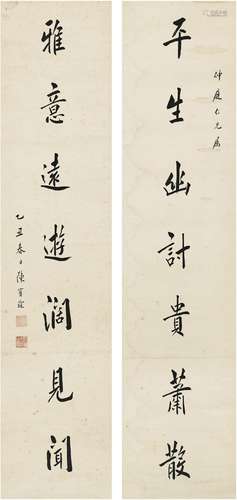 仲庭仁兄属
平生幽討貴蕭散
雅意遠遊濶見聞
乙丑春日陳寶琛